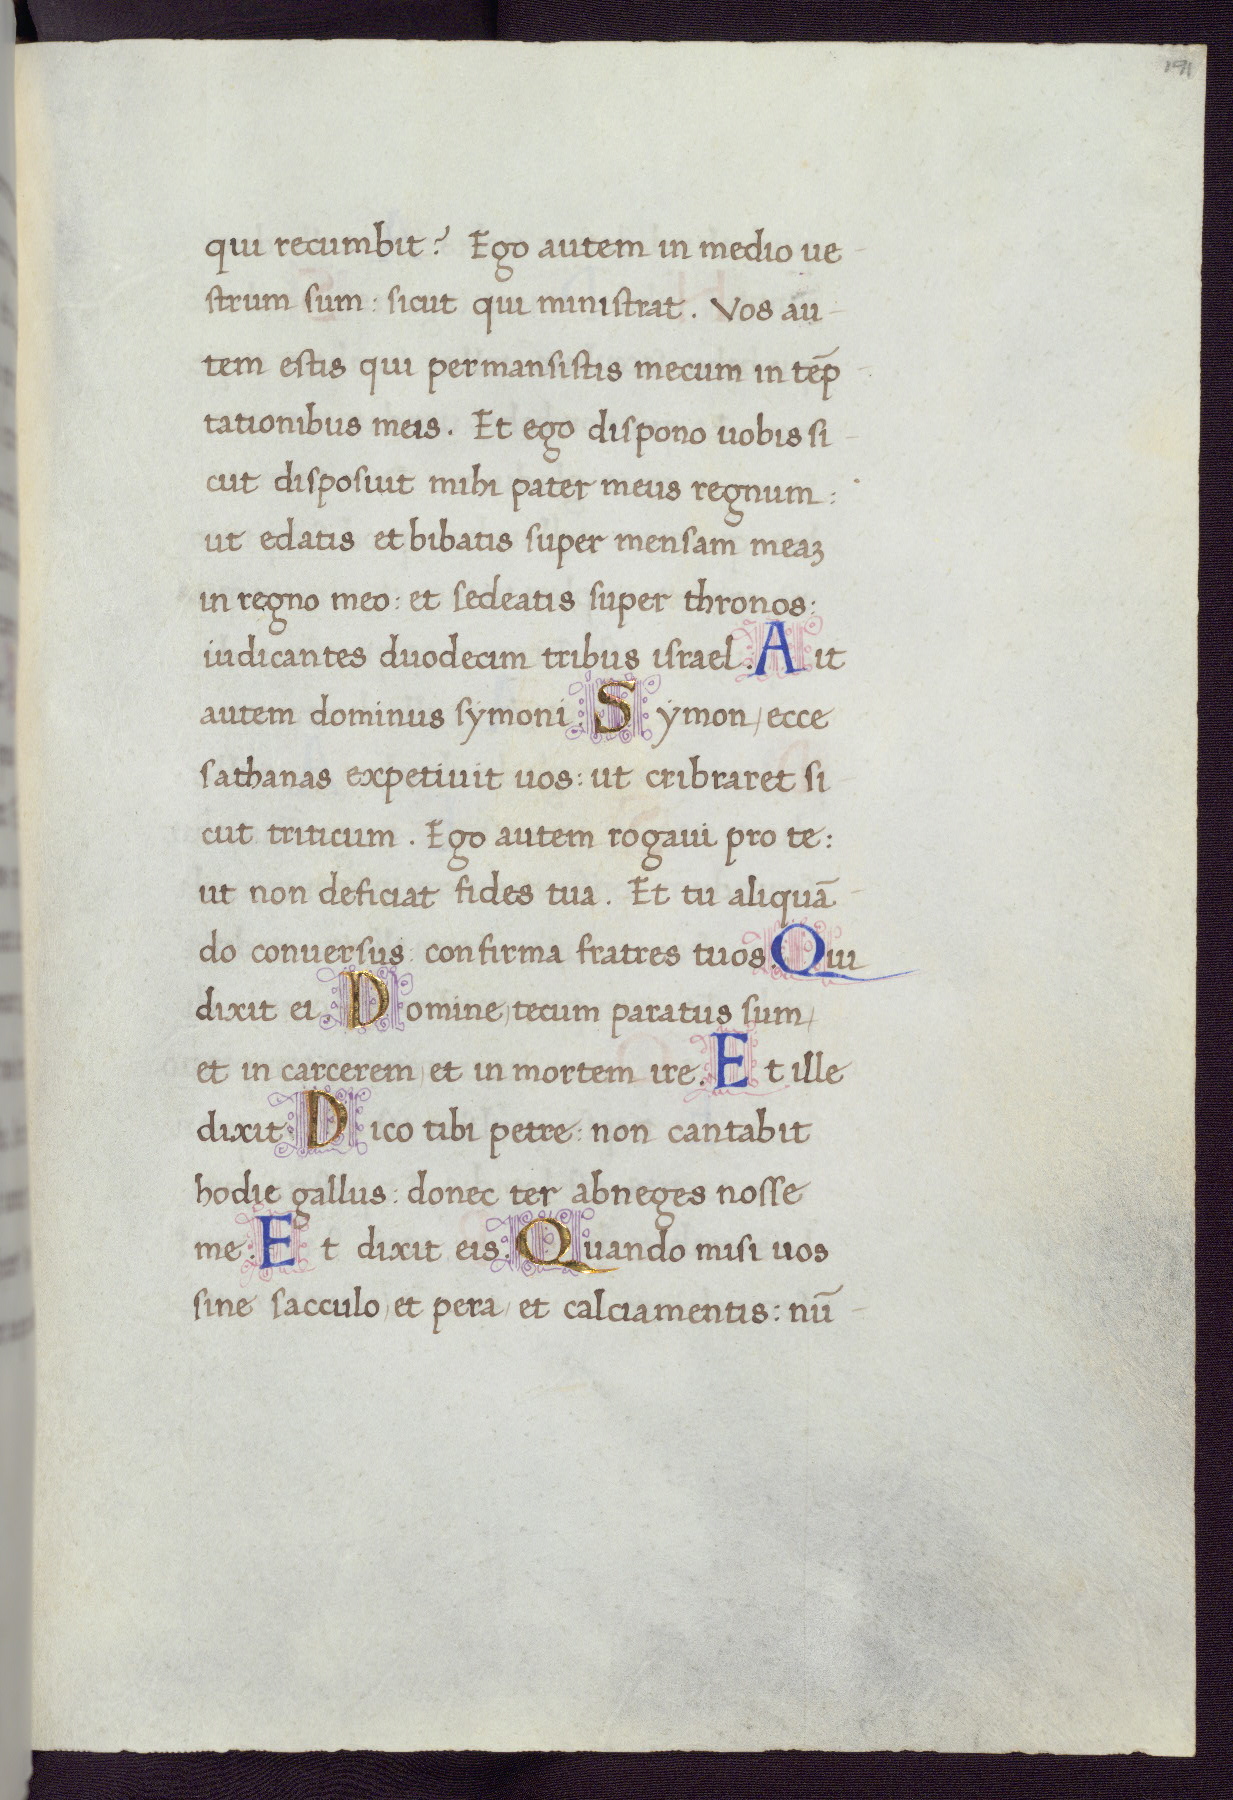 191
qui recumbit? Ego autem in medio ue-
strum sum: sicut qui ministrat. Vos au-
tem estis qui permansistis mecum in tēp-
tationibus meis. Et ego dispono uobis si-
cut disposuit mihi pater meus regnum:
ut edatis et bibatis super mensam meaꝫ
in regno meo: et sedeatis super thronos:
iudicantes duodecim tribus israel. Ait
autem dominus symoni. Symon, ecce
sathanas expetiuit uos: ut cribraret si-
cut triticum. Ego autem rogaui pro te:
ut non deficiat fides tua. Et tu aliquā-
do conuersus: confirma fratres tuos. Qui
dixit ei. Domine, tecum paratus sum,
et in carcerem, et in mortem ire. Et ille
dixit. Dico tibi petre: non cantabit
hodie gallus: donec ter abneges nosse
me. Et dixit eis. Quando misi uos
sine sacculo, et pera, et calciamentis: nū-